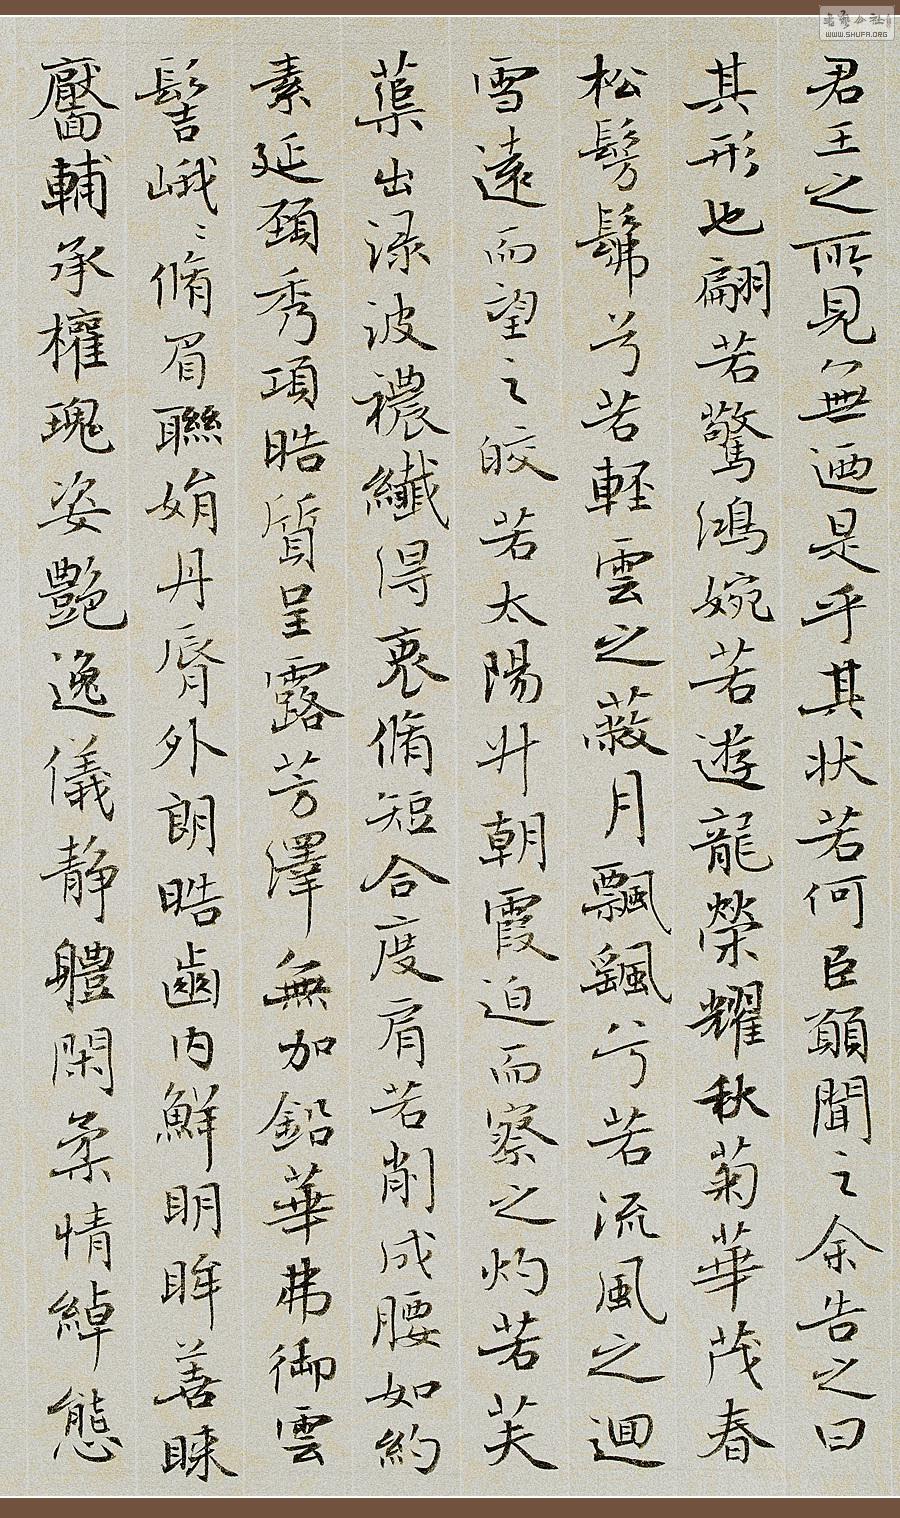 君王之所見無迺是乎其狀若何臣願聞之余告之曰
其形也翩若驚鴻婉若遊龍榮耀秋菊華茂春
松髣髴兮若輕雲之蔽月飄颻兮若流風之迴
雪遠而望之皎若太陽升朝霞迫而察之灼若芙
蕖出淥波襛纖得衷脩短合度肩若削成腰如約
素延頸秀項皓質呈露芳澤無加鉛華弗御雲
髻峨〻脩眉聯娟丹脣外朗皓齒內鮮明眸善睞
靨輔承權瑰姿艷逸儀靜體閑柔情綽態
WWW.SHUFA.ORG